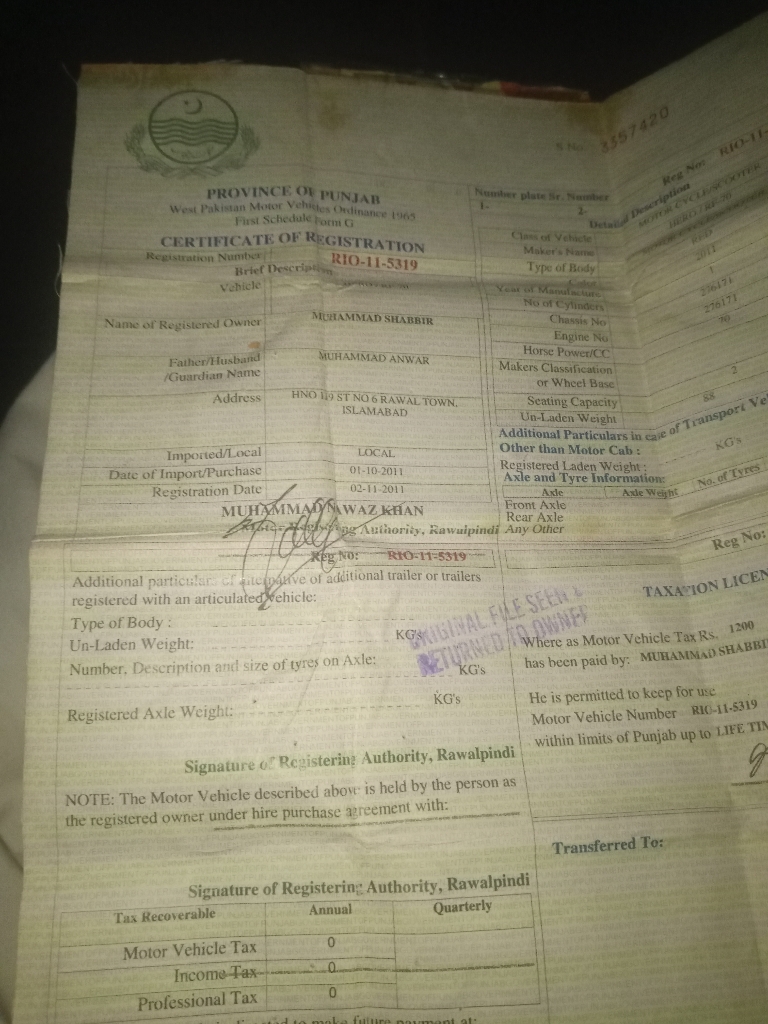 S No. 3357420
PROVINCE OF PUNJAB
West Pakistan Motor Vehicles Ordinance 1965
First Schedule Form G
CERTIFICATE OF REGISTRATION
Registration Number RIO-11-5319
Brief Description
Vehicle
Name of Registered Owner MUHAMMAD SHABBIR
Father/Husband MUHAMMAD ANWAR
/Guardian Name
Address HNO 119 ST NO 6 RAWAL TOWN,
ISLAMABAD
Imported/Local LOCAL
Date of Import/Purchase 01-10-2011
Registration Date 02-11-2011
MUHAMMAD NAWAZ KHAN
Registering Authority, Rawalpindi
Reg No: RIO-11-5319
Additional particulars of alternative of additional trailer or trailers
registered with an articulated vehicle:
Type of Body :
Un-Laden Weight: KG's
Number, Description and size of tyres on Axle: KG's
Registered Axle Weight: KG's
ORIGINAL FILE SEEN &
RETURNED TO OWNER
Signature of Registering Authority, Rawalpindi
NOTE: The Motor Vehicle described above is held by the person as
the registered owner under hire purchase agreement with:
Signature of Registering Authority, Rawalpindi
Tax Recoverable Annual Quarterly
Motor Vehicle Tax 0
Income Tax 0
Professional Tax 0
to make future payment at:
Reg No: RIO-11-
Number plate Sr. Number
1- 2-
Detailed Description
Class of Vehicle MOTOR CYCLE/SCOOTER
Maker's Name
Type of Body
Color RED
Year of Manufacture 2011
No of Cylinders 1
Chassis No 276171
Engine No 276171
Horse Power/CC 70
Makers Classification
or Wheel Base
Seating Capacity 2
Un-Laden Weight 88
Additional Particulars in case of Transport Ve
Other than Motor Cab :
Registered Laden Weight : KG's
Axle and Tyre Information:
Axle Axle Weight No. of Tyres
Front Axle
Rear Axle
Any Other
Reg No:
TAXATION LICEN
Where as Motor Vehicle Tax Rs. 1200
has been paid by: MUHAMMAD SHABBI
He is permitted to keep for use
Motor Vehicle Number RIO-11-5319
within limits of Punjab up to LIFE TIM
Transferred To: